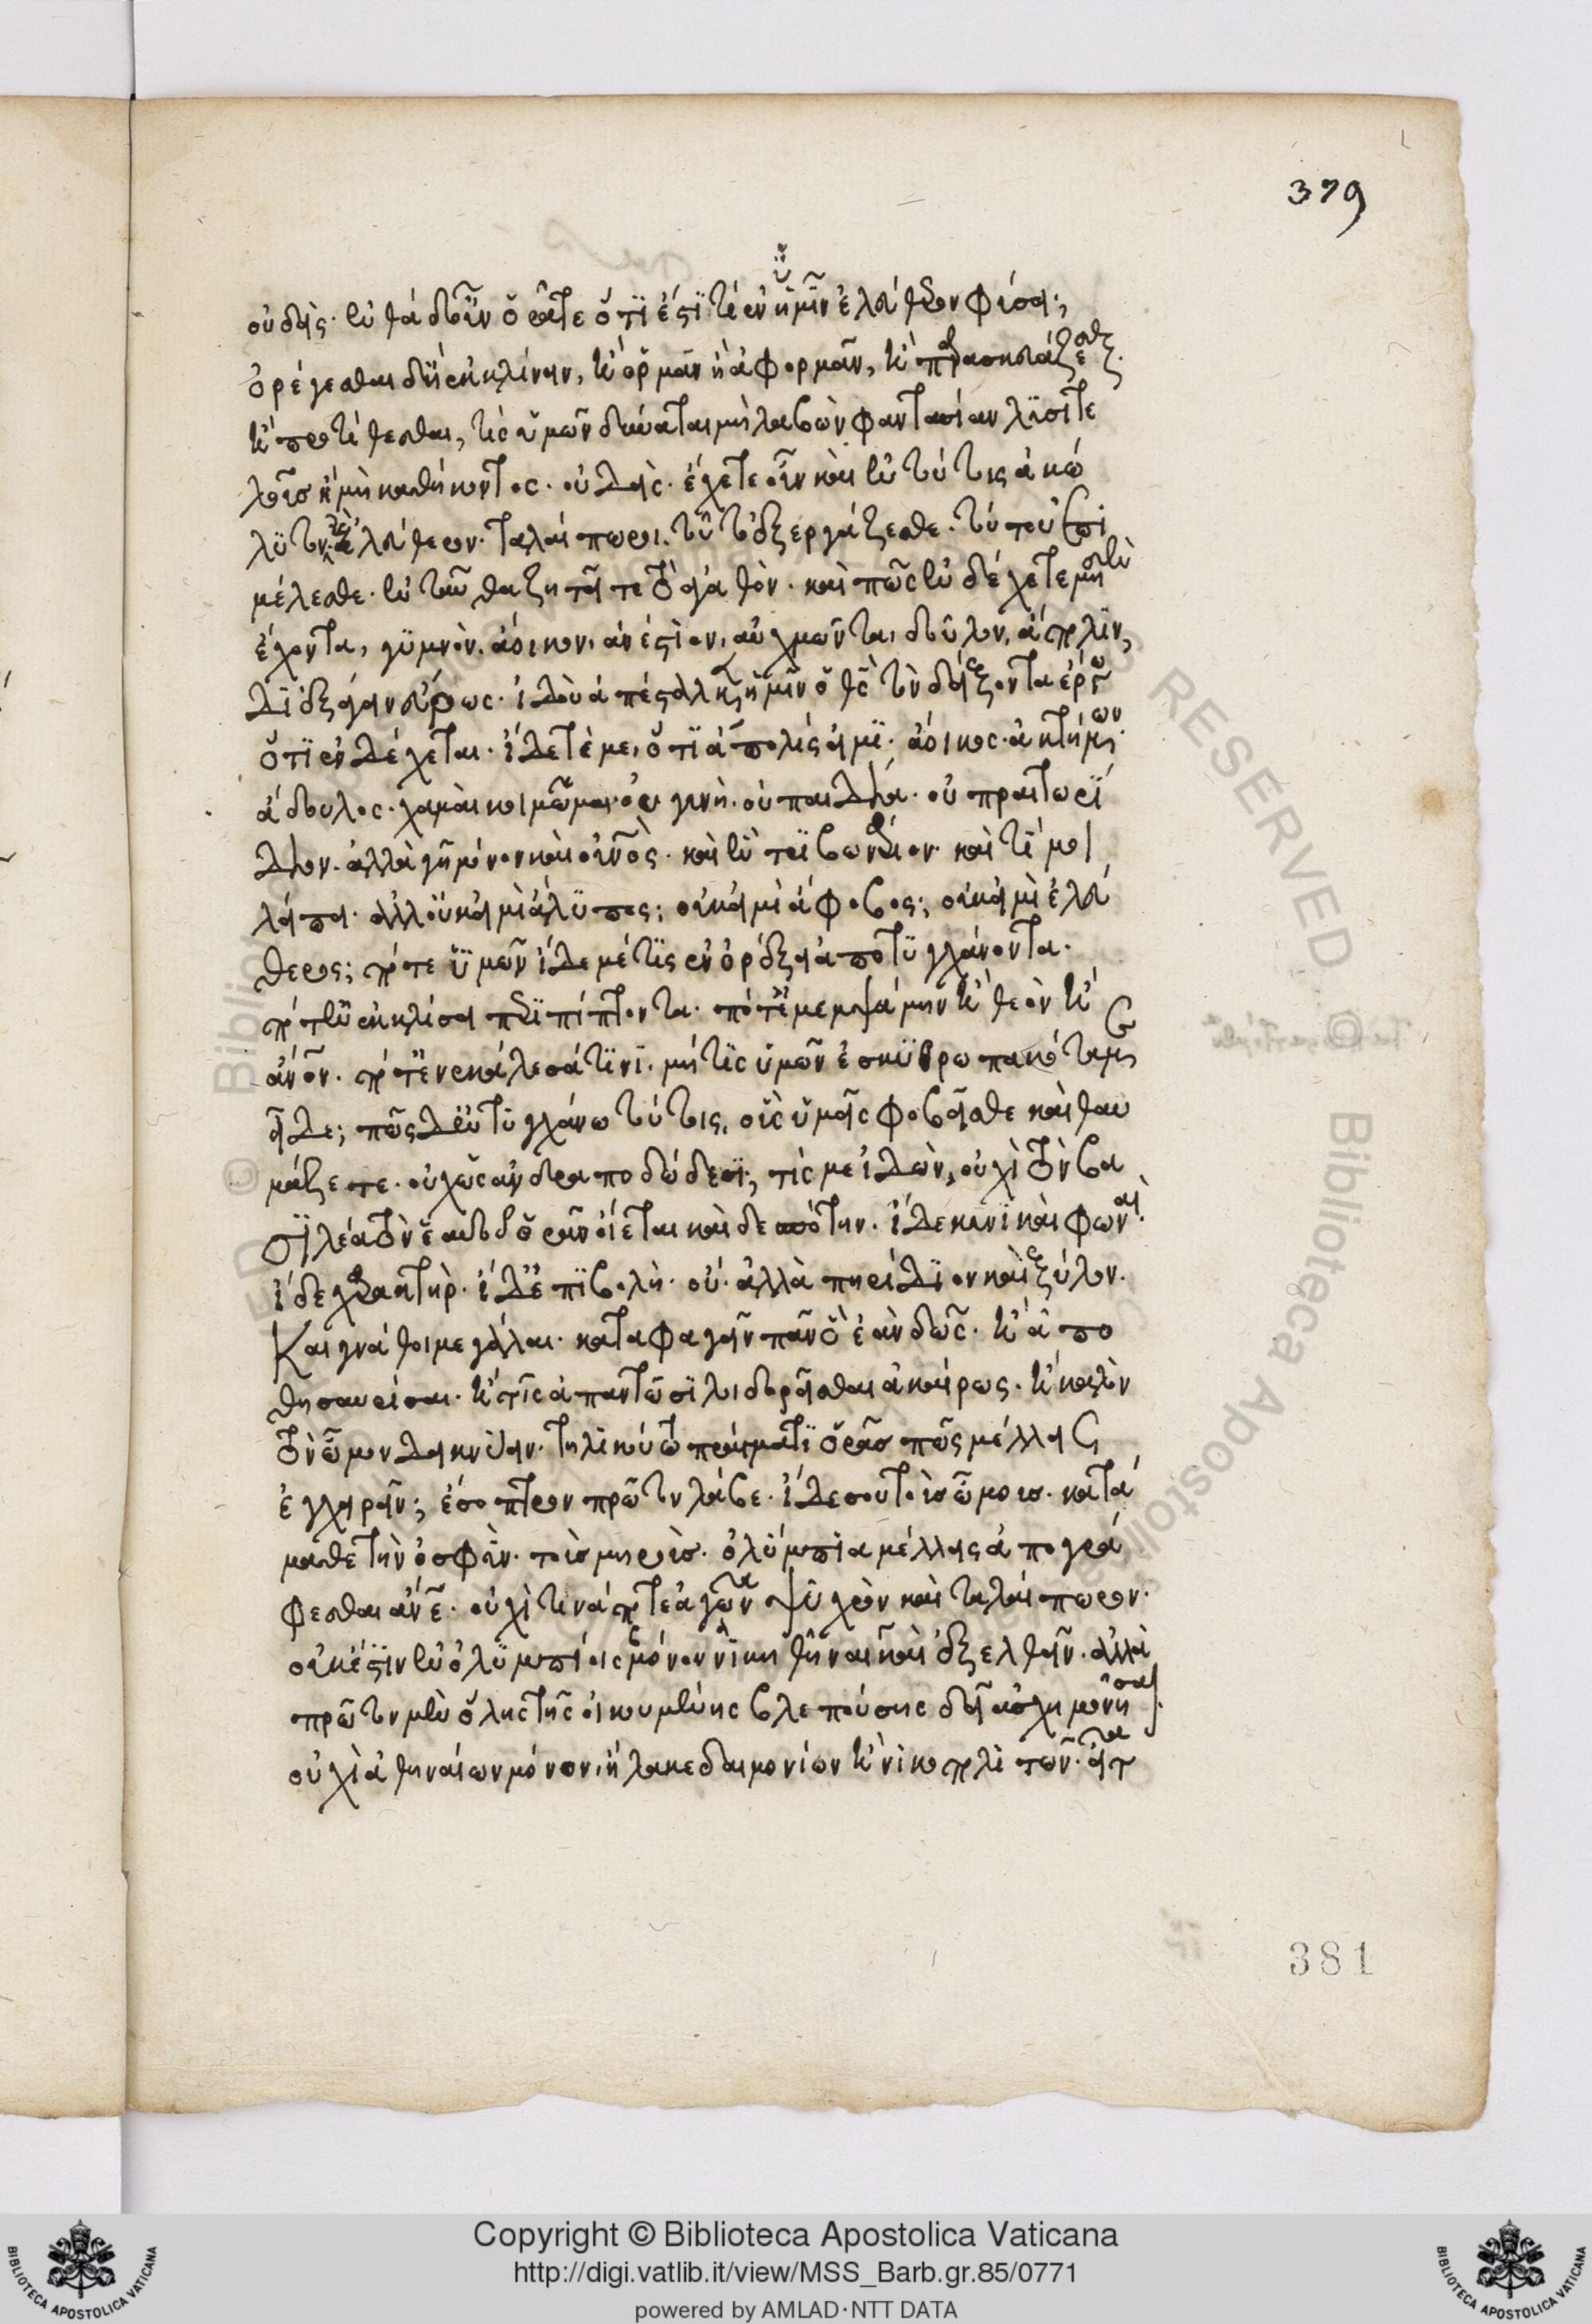 379
οὐδεὶς· ἐνθάδ' οὖν ὁρᾶτε ὅτι ἐστί τι ἐν ἡμῖν ἐλεύθερον φύσει;
ὀρέγεσθαι δ' ἢ ἐκκλίνειν, κ' ὁρμᾶν ἢ ἀφορμᾶν, κ' παρασκευάζεσθαι
κ' προτίθεσθαι, τίς ὑμῶν δύναται μὴ λαβὼν φαντασίαν λυσιτε
λοῦσ ἢ μὴ καθήκοντος· οὐδείς· ἔχετε οὖν καὶ ἐν τούτοις ἀκώ
λυτον κὲ ἐλεύθερον· ταλαίπωροι· τοῦτο ἐξεργάζεσθε· τούτου ἐπι
μέλεσθε· ἐνταῦθα ζητεῖτε τὸ ἀγαθόν· καὶ πῶς ἐνδέχεται μηδὲν
ἔχοντα, γυμνὸν, ἄοικον, ἀνέστιον, αὐχμῶντα, δοῦλον, ἄπολιν,
διεξάγειν εὐρόως· ἰδοὺ ἀπέσταλκεν ὑμῖν ὁ θεὸς τὸν δείξοντα ἔργῳ
ὅτι ἐνδέχεται· ἴδετέ με, ὅτι ἄπολίς εἰμι· ἄοικος· ἀκτήμων·
ἄδουλος· χαμαὶ κοιμῶμαι· οὐ γυνή· οὐ παιδία· οὐ πραιτωρί
διον· ἀλλὰ γῆ μόνον καὶ οὐνὸς· καὶ ἓν τριβωνάριον· καὶ τί μοι
λείπει· ἀλλ' οὐκ εἰμὶ ἄλυπος; οὐκ εἰμὶ ἄφοβος; οὐκ εἰμὶ ἐλεύ
θερος; πότε ὑμῶν ἴδε μέ τις ἐν ὀρέξει ἀποτυγχάνοντα·
πότ' ἐν ἐκκλίσει περιπίπτοντα· πότ' ἐμεμψάμην κ' θεὸν κ'
ἄνον· πότ' ἐνεκάλεσά τινι· μή τις ὑμῶν ἐσκυθρωπακότα με
εἶδε; πῶς δ' ἐντυγχάνω τούτοις, οὓς ὑμεῖς φοβεῖσθε καὶ θαυ
μάζετε· οὐχ ὡς ἀνδραπόδώδεσι; τίς με ἰδὼν, οὐχὶ τὸν βα
σιλέα τὸν ἑαυτοῦ ὁρᾶν οἴεται καὶ δεσπότην· ἴδε κυνικαὶ φωναὶ·
ἴδε χαρακτήρ· ἴδ' ἐπιβολή· οὔ· ἀλλὰ πηρίδιον καὶ ξύλον·
Καὶ γνάθοι μεγάλαι· καταφαγεῖν πᾶν ὃ ἐὰν δῷς· κ' ἀπο
θησαυρίσαι· κ' τοῖς ἀπαντῶσι λοιδορεῖσθαι ἀκαίρως· κ' καλὸν
τὸν ὦμον δεικνύειν· τηλικούτῳ πράγματι ὁρᾷσ πῶς μέλλεις
ἐγχειρεῖν; ἔσοπτρον πρῶτον λάβε· ἴδε σου τοὺσ ὤμουσ· κατά
μαθε τὴν ὀσφῦν· τοὺσ μηρούσ· ὀλύμπια μέλλεις ἀπογρά
φεσθαι ἄνε· οὐχὶ τινά ποτε ἀγῶνα ψυχρὸν καὶ ταλαίπωρον·
οὐκ ἔστιν ἐν ὀλυμπίοις μόνον νικηθῆναι καὶ ἐξελθεῖν· ἀλλὰ
πρῶτον μὲν ὅλης τῆς οἰκουμένης βλεπούσης δεῖ ἀσχημονῆσαι·
οὐχὶ ἀθηναίων μόνον, ἢ λακεδαιμονίων κ' νικοπολιτῶν· εἶτα
381
Copyright © Biblioteca Apostolica Vaticana
http://digi.vatlib.it/view/MSS_Barb.gr.85/0771
powered by AMLAD·NTT DATA